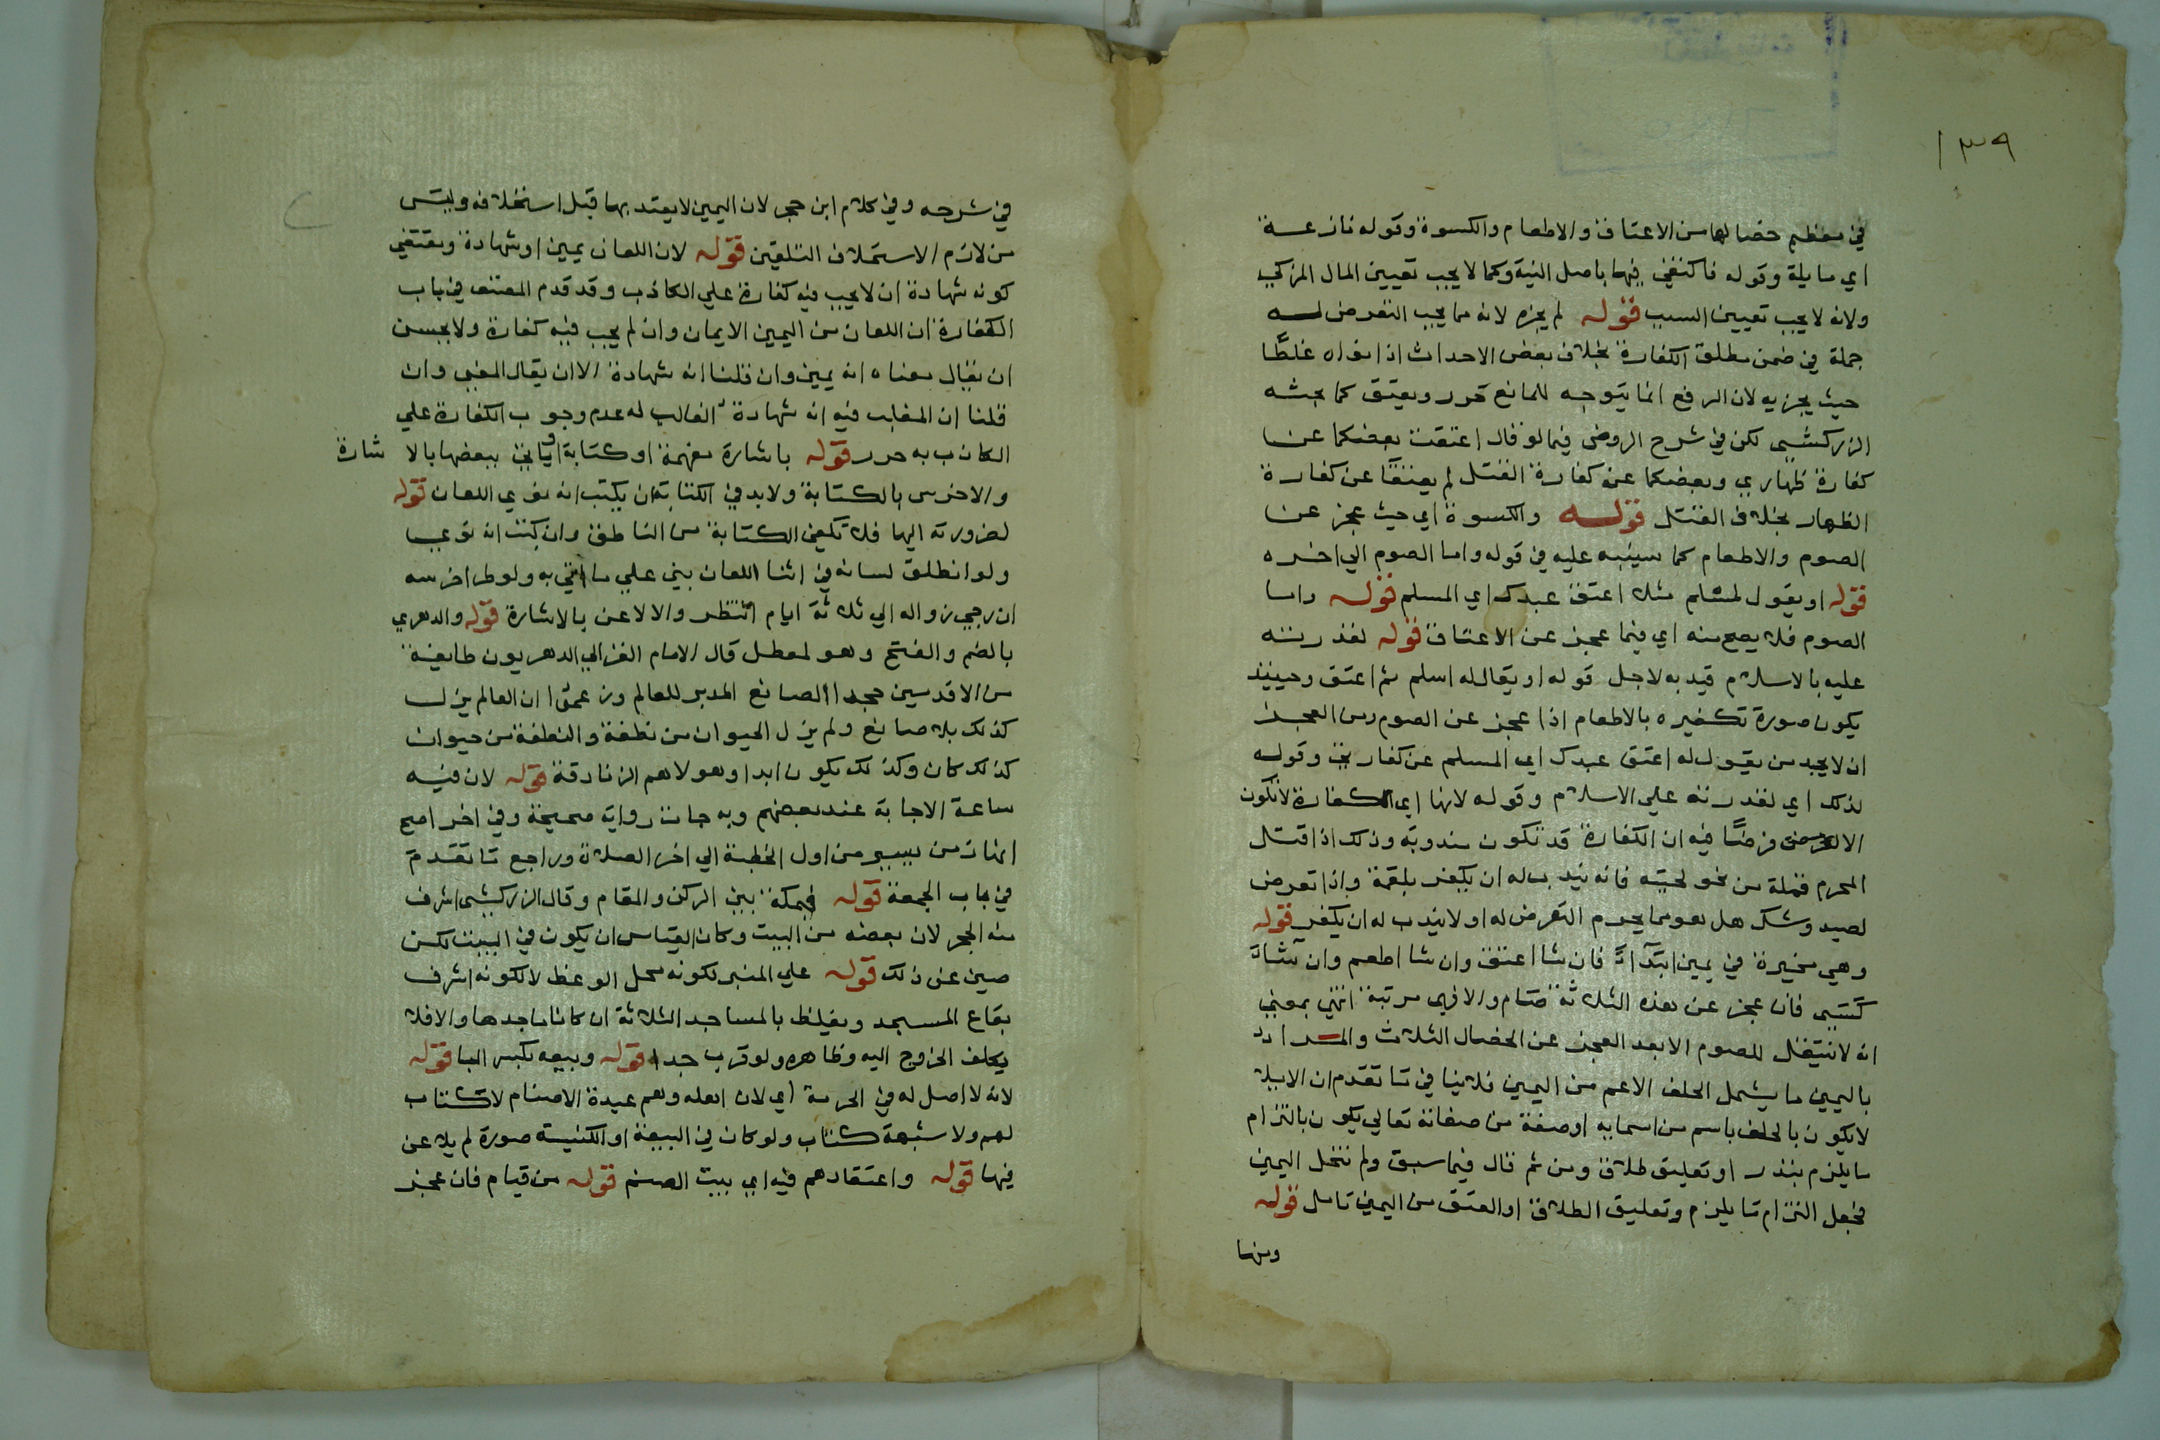 ١٣٩
في معظم خصالها من الاعتاق والاطعام والكسوة وقوله نازعة
اي مايلة وقوله فاكتفي فيها باصل النية وكما لا يجب تعيين المال المزكي
ولانه لا يجب تعيين السبب قوله لم يجزه لانه مما يجب التعرض له
جملة في ضمن مطلق الكفارة بخلاف بعض الاحداث اذا نواه غلطا
حيث يجزيه لان الرفع انما يتوجه للمانع حرر ويعتق كما بحثه
الزركشي لكن في شرح الروض فيما لو قال اعتقت بعضكما عن
كفارة ظهاري وبعضكما عن كفارة القتل لم يعتقا عن كفارة
الظهار بخلاف القتل قوله والكسوة اي حيث عجز عن
الصوم والاطعام كما سينبه عليه في قوله واما الصوم الي اخره
قوله او يقول لمسلم مثلا اعتق عبدك اي المسلم قوله واما
الصوم فلا يصح منه اي فيما عجز عن الاعتاق قوله لقدرته
عليه بالاسلام قيد به لاجل قوله او يقال له اسلم ثم اعتق وحينئذ
يكون صورة تكفيره بالاطعام اذا عجز عن الصوم ومن العجز
ان لا يجد من يقول له اعتق عبدك اي المسلم عن كفارتي وقوله
لذلك اي لقدرته علي الاسلام وقوله لانها اي الكفارة لا تكون
الا فرضا فيه ان الكفارة قد تكون مندوبة وذلك اذا قتل
المحرم قملة من نحو لحيته فانه يندب له ان يكفر بلقمة واذا تعرض
لصيد وشك هل هو مما يحرم التعرض له او لا يندب له ان يكفر قوله
وهي مخيرة في يمين ابتداء فان شا اعتق وان شا اطعم وان شاء
كسي فان عجز عن هذه الثلاثة صام والاولي مرتبة انتهي بمعني
انه لا ينتقل للصوم الا بعد العجز عن الخصال الثلاث والمراد
باليمين ما يشمل الحلف الاعم من اليمين فلا ينافي ما تقدم ان الايلا
لا يكون بالحلف باسم من اسمايه او صفة من صفاته تعالي يكون بالتزام
ما يلزم بنذر او تعليق طلاق ومن ثم قال فيما سبق ولم تنحل اليمين
فجعل التزام ما يلزم وتعليق الطلاق او العتق من اليمين تامل قوله
ومنها
في شرحه وفي كلام ابن حجر لان اليمين لا يعتد بها قبل استخلافه وليس
من لازم الاستحلاف التلقين قوله لان اللعان يمين او شهادة ويقتضي
كونه شهادة ان لا يجب فيه كفارة علي الكاذب وقد قدم المصنف في باب
الكفارة ان اللعان من اليمين الايمان وان لم يجب فيه كفارة ولا يحسن
ان يقال معناه انه يمين وان قلنا انه شهادة الا ان يقال المعني وان
قلنا ان المغلب فيه انه شهادة الغالب له عدم وجوب الكفارة علي
الكاذب به حرر قوله باشارة مفهمة او كتابة وياتي ببعضها بالاشارة
والاخرس بالكتابة ولا بد في الكتابة ان يكتب انه نوي اللعان قوله
لضرورته اليها فلا تكفي الكتابة من الناطق وان كتب انه نوي
ولو انطلق لسانه في اثنا اللعان بني علي ما اتي به ولو طرا خرسه
ان رجي زواله الي ثلاثة ايام انتظر والا لاعن بالاشارة قوله والدهري
بالضم والفتح وهو لمعطل قال الامام الغزالي الدهريون طايفة
من الاقدمين جحدوا الصانع المدبر للعالم وزعموا ان العالم يزل
كذلك بلا صانع ولم يزل الحيوان من نطفة والنطفة من حيوان
كذلك كان وكذلك يكون ابدا وهولاهم الزنادقة قوله لان فيه
ساعة الاجابة عند بعضهم وبه جات رواية صحيحة وفي اخر اصح
انها من اول الخطبة الي اخر الصلاة وراجع ما تقدم
في باب الجمعة قوله فبمكة بين الركن والمقام وقال الزركشي اشرف
منه الحجر لان بعضه من البيت وكان القياس ان يكون في البيت لكن
صين عن ذلك قوله علي المنبر لكونه محل الوعظ لا لكونه اشرف
بقاع المسجد ويغلظ بالمساجد الثلاثة ان كانا بها جدها والا فلا
يكلف الخروج اليه وظاهره ولو قرب جدا قوله وبيعه بكسر البا قوله
لانه لا اصل له في الحرمة اي لان اهله وهم عبدة الاصنام لا كتاب
لهم ولا شبهة كتاب ولو كان في البيعة او الكنيسة صورة لم يلاعن
فيها قوله واعتقادهم فيه اي بيت الصنم قوله من قيام فان عجز